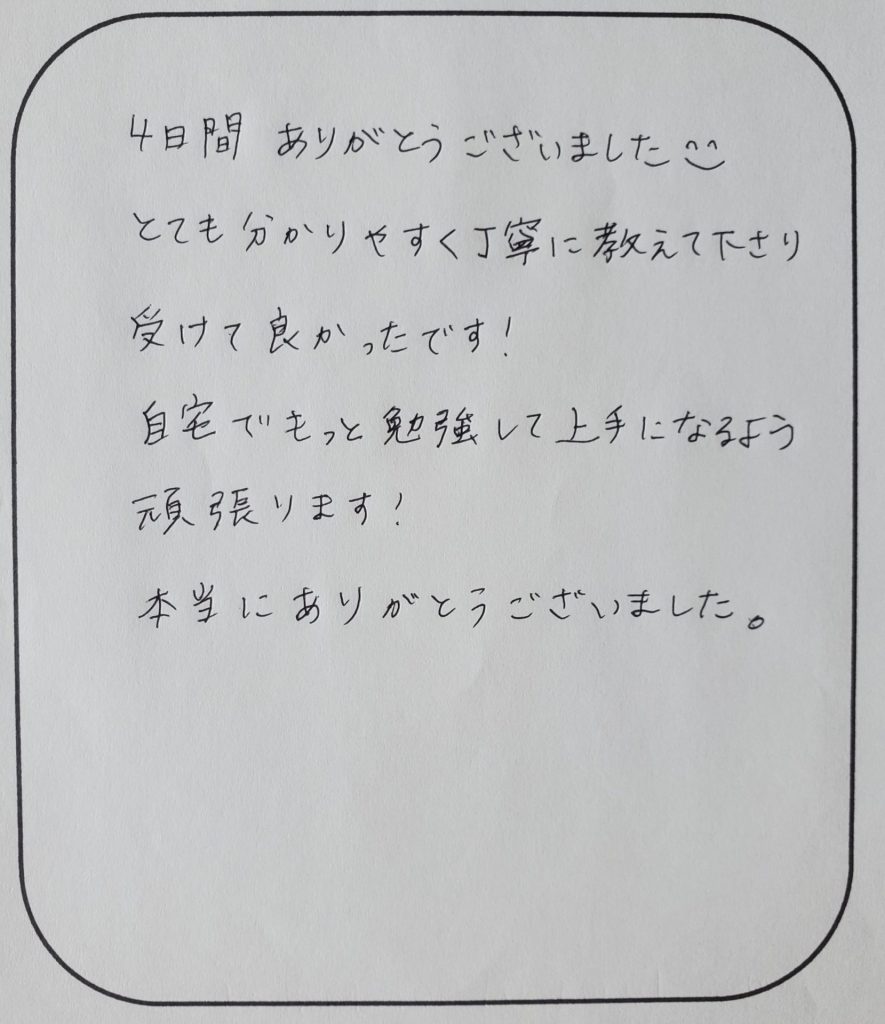 4日間 ありがとうございました
とても分かりやすく丁寧に教えて下さり
受けて良かったです!
自宅でもっと勉強して上手になるよう
頑張ります!
本当にありがとうございました。